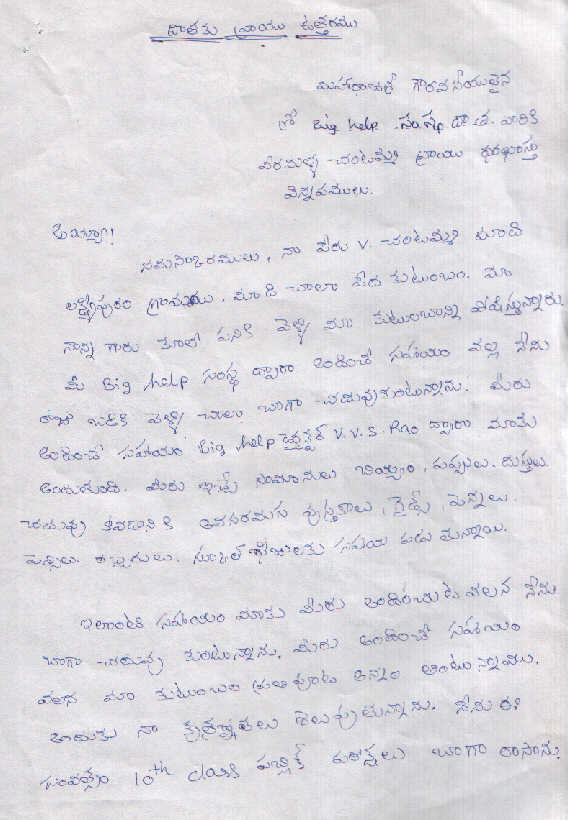 దాతకు వ్రాయు ఉత్తరము
మహారాజశ్రీ గౌరవనీయులైన
శ్రీ Big help సంస్థ దాత. వారికి
వరమళ్ళ చంటమ్మ వ్రాయు ధరఖాస్తు
విన్నపములు.
అయ్యా!
నమస్కారములు, నా పేరు V. చంటమ్మ మాది
లక్ష్మీపురం గ్రామము. మాది చాలా పేద కుటుంబం. మా
నాన్న గారు కూలి పనికి వెళ్ళి మా కుటుంబాన్ని పోషిస్తున్నారు.
మీ Big help సంస్థ ద్వారా అందించే సహాయం వల్ల నేను
రోజు బడికి వెళ్ళి చాలా బాగా చదువుకుంటున్నాను. మీరు
అందించే సహాయం Big help డైరెక్టర్ V.V.S. Rao ద్వారా మాకు
అందుతుంది. మీరు ఇచ్చే సామానులు బియ్యం, పప్పులు. దుస్తులు
చదువు కోవడానికి అవసరమగు పుస్తకాలు, గైడ్స్, పెన్నులు.
పెన్సిలు. రబ్బరులు. స్కూల్ ఫీజులకు సహాయ పడు తున్నాయి.
ఇలాంటి సహాయం మాకు మీరు అందించుట వలన నేను
బాగా చదువు కుంటున్నాను. మీరు అందించే సహాయం
వలన మా కుటుంబం ప్రతిపూట అన్నం తింటు న్నాము.
అందుకు నా కృతజ్ఞతలు తెలుపుతున్నాను. నేను ఈ
సంవత్సరం 10th class పబ్లిక్ పరీక్షలు బాగా రాసాను.